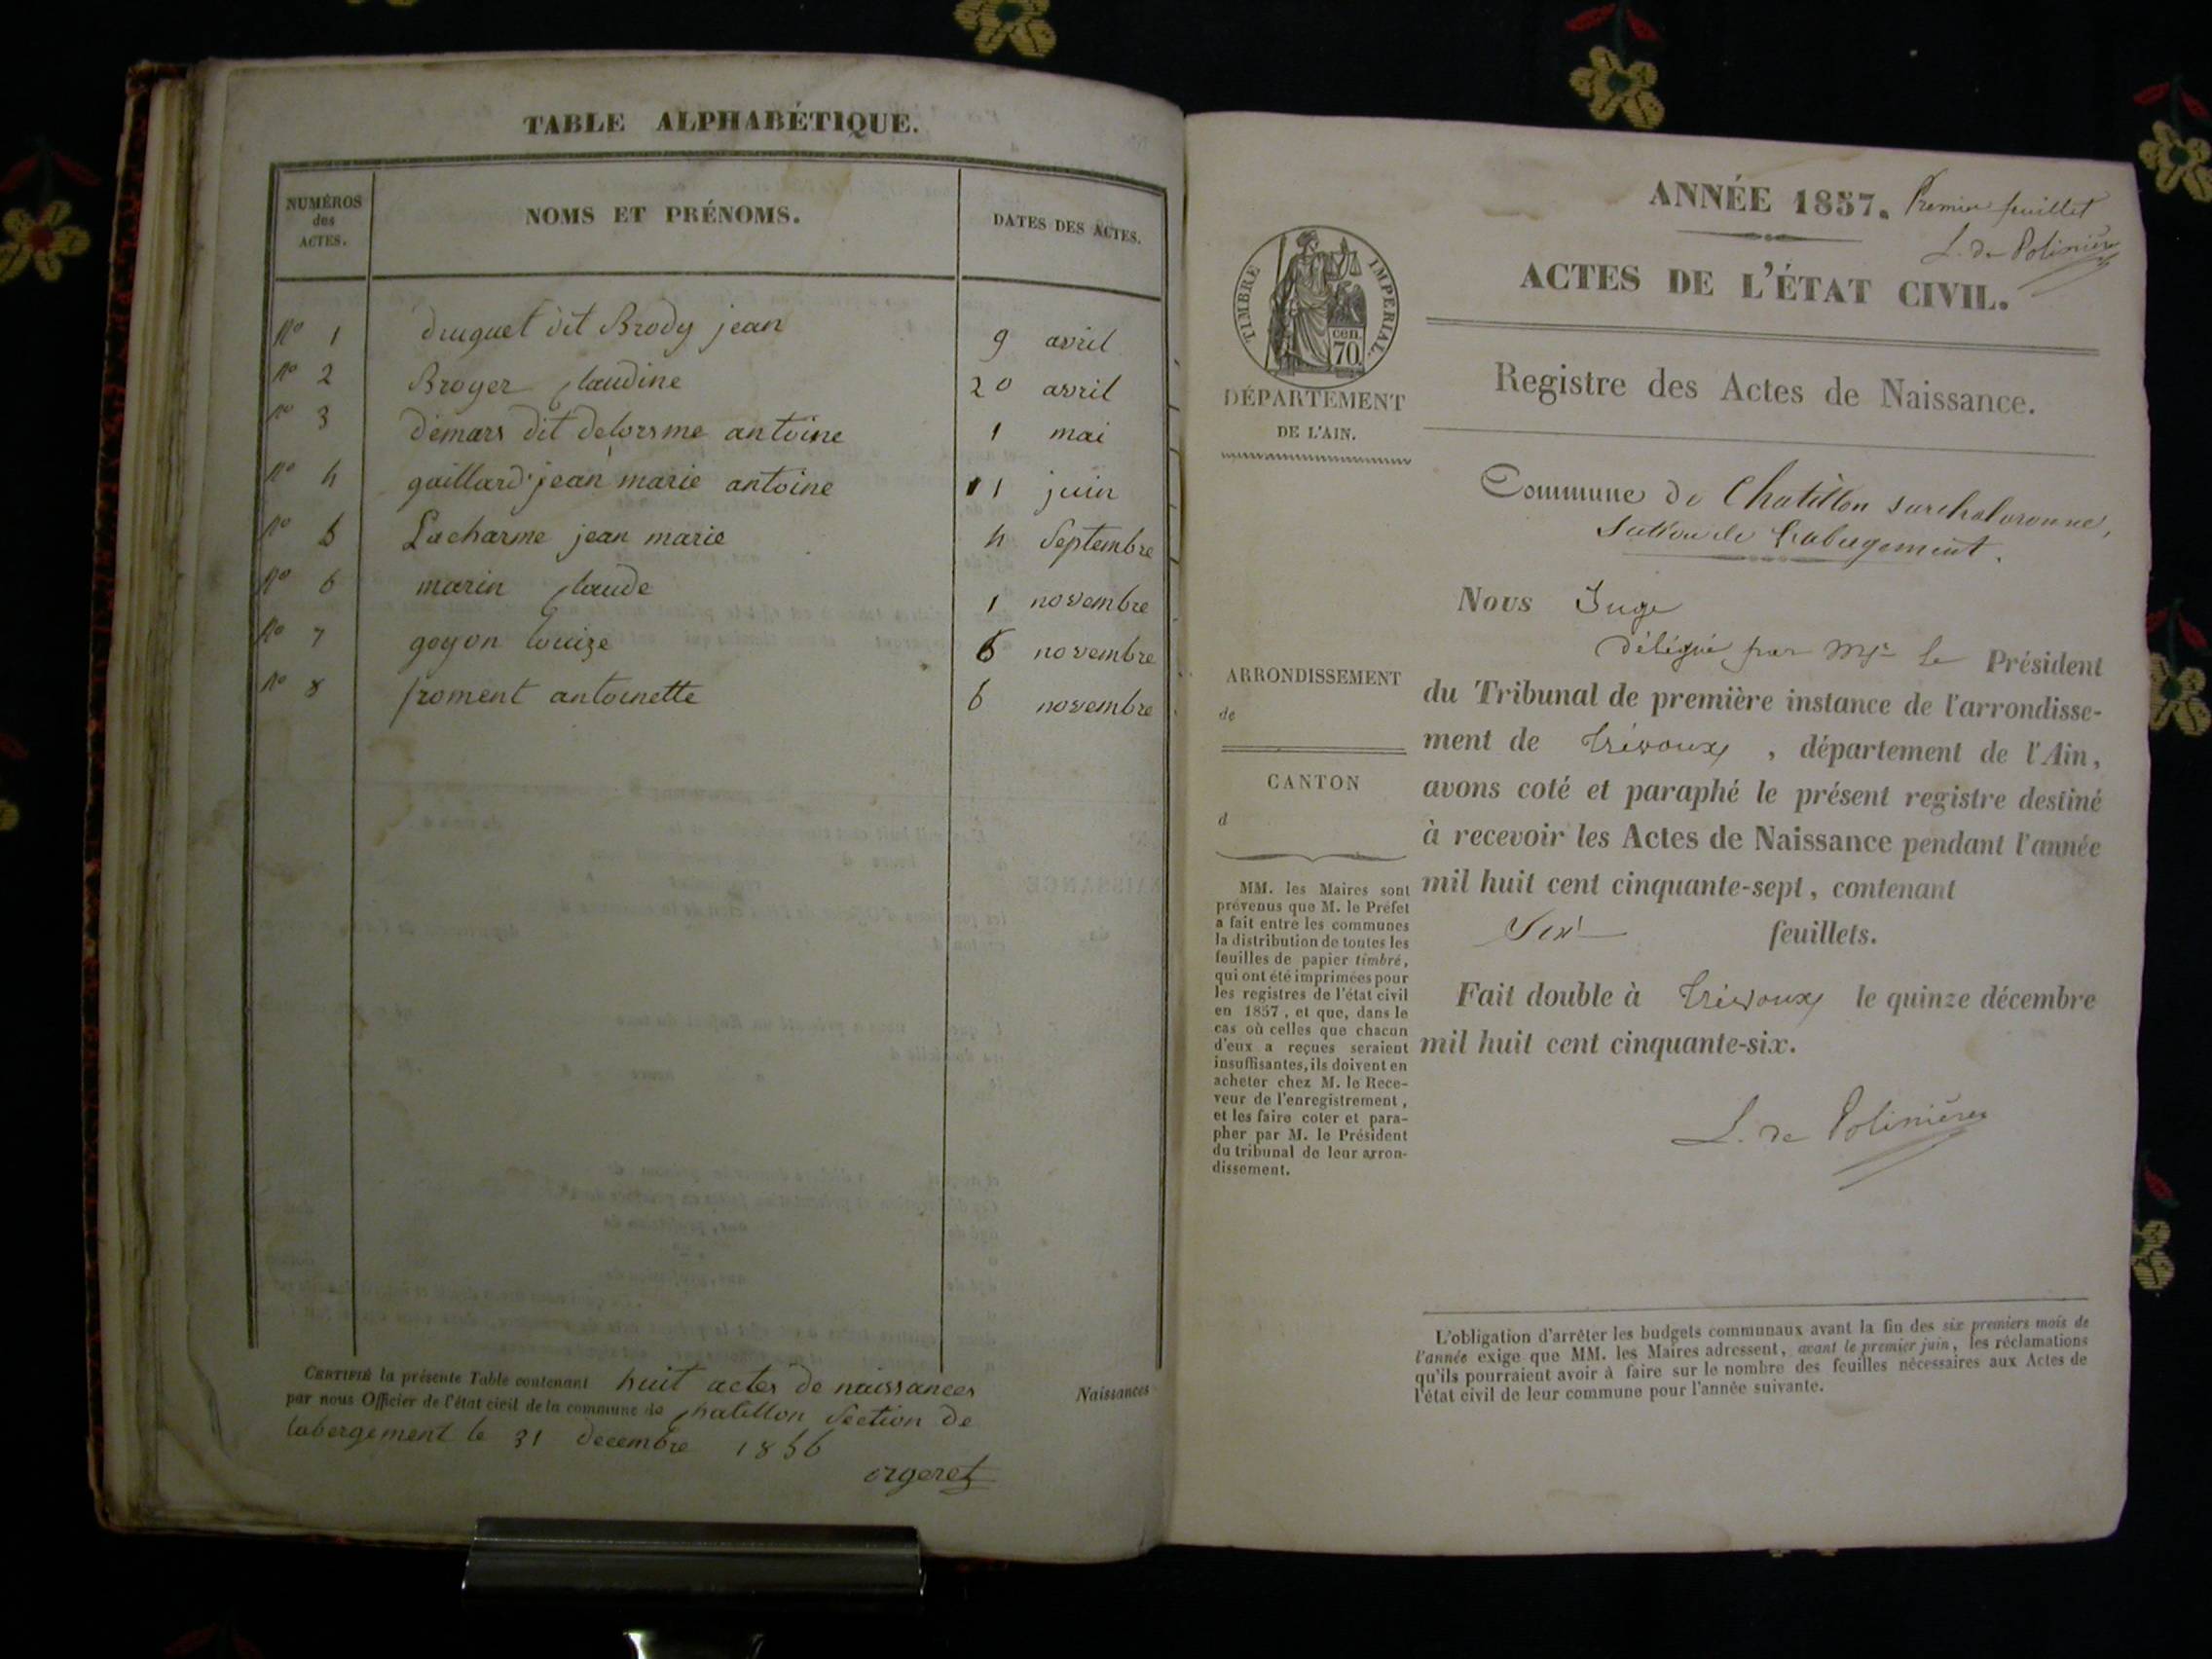 TABLE ALPHABÉTIQUE.
NUMÉROS
des
ACTES.
NOMS ET PRÉNOMS.
DATES DES ACTES.
No 1 duguet dit Brody jean 9 avril
No 2 Broyer Claudine 20 avril
No 3 démars dit delorsme antoine 1 mai
No 4 gaillard jean marie antoine 11 juin
No 5 Lacharme jean marie 4 Septembre
No 6 marin Claude 1 novembre
No 7 goyon louise 6 novembre
No 8 froment antoinette 6 novembre
CERTIFIÉ la présente Table contenant huit actes de naissances
par nous Officier de l'état civil de la commune de Chatillon Section de
labergement le 31 decembre 1856
orgeret
Naissances
ANNÉE 1857. Premier feuillet
L. de Polinière
ACTES DE L'ÉTAT CIVIL.
Registre des Actes de Naissance.
TIMBRE IMPERIAL.
cen.
70.
DÉPARTEMENT
DE L'AIN.
ARRONDISSEMENT
de
CANTON
d
MM. les Maires sont
prévenus que M. le Préfet
a fait entre les communes
la distribution de toutes les
feuilles de papier timbré,
qui ont été imprimées pour
les registres de l'état civil
en 1857, et que, dans le
cas où celles que chacun
d'eux a reçues seraient
insuffisantes, ils doivent en
acheter chez M. le Rece-
veur de l'enregistrement,
et les faire coter et para-
pher par M. le Président
du tribunal de leur arron-
dissement.
Commune de Chatillon surchalaronne,
labergement.
Nous Juge
délégué par Mr le Président
du Tribunal de première instance de l'arrondisse-
ment de Trévoux, département de l'Ain,
avons coté et paraphé le présent registre destiné
à recevoir les Actes de Naissance pendant l'année
mil huit cent cinquante-sept, contenant
Six feuillets.
Fait double à Trévoux le quinze décembre
mil huit cent cinquante-six.
L. de Polinière
L'obligation d'arrêter les budgets communaux avant la fin des six premiers mois de
l'année exige que MM. les Maires adressent, avant le premier juin, les réclamations
qu'ils pourraient avoir à faire sur le nombre des feuilles nécessaires aux Actes de
l'état civil de leur commune pour l'année suivante.